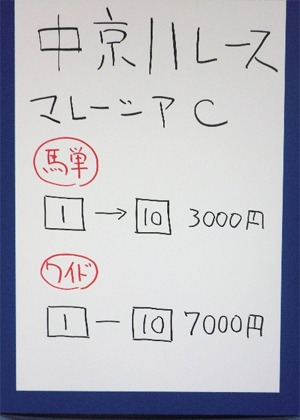 中京11レース
マレーシアC
馬単
1→10 3000円
ワイド
1－10 7000円